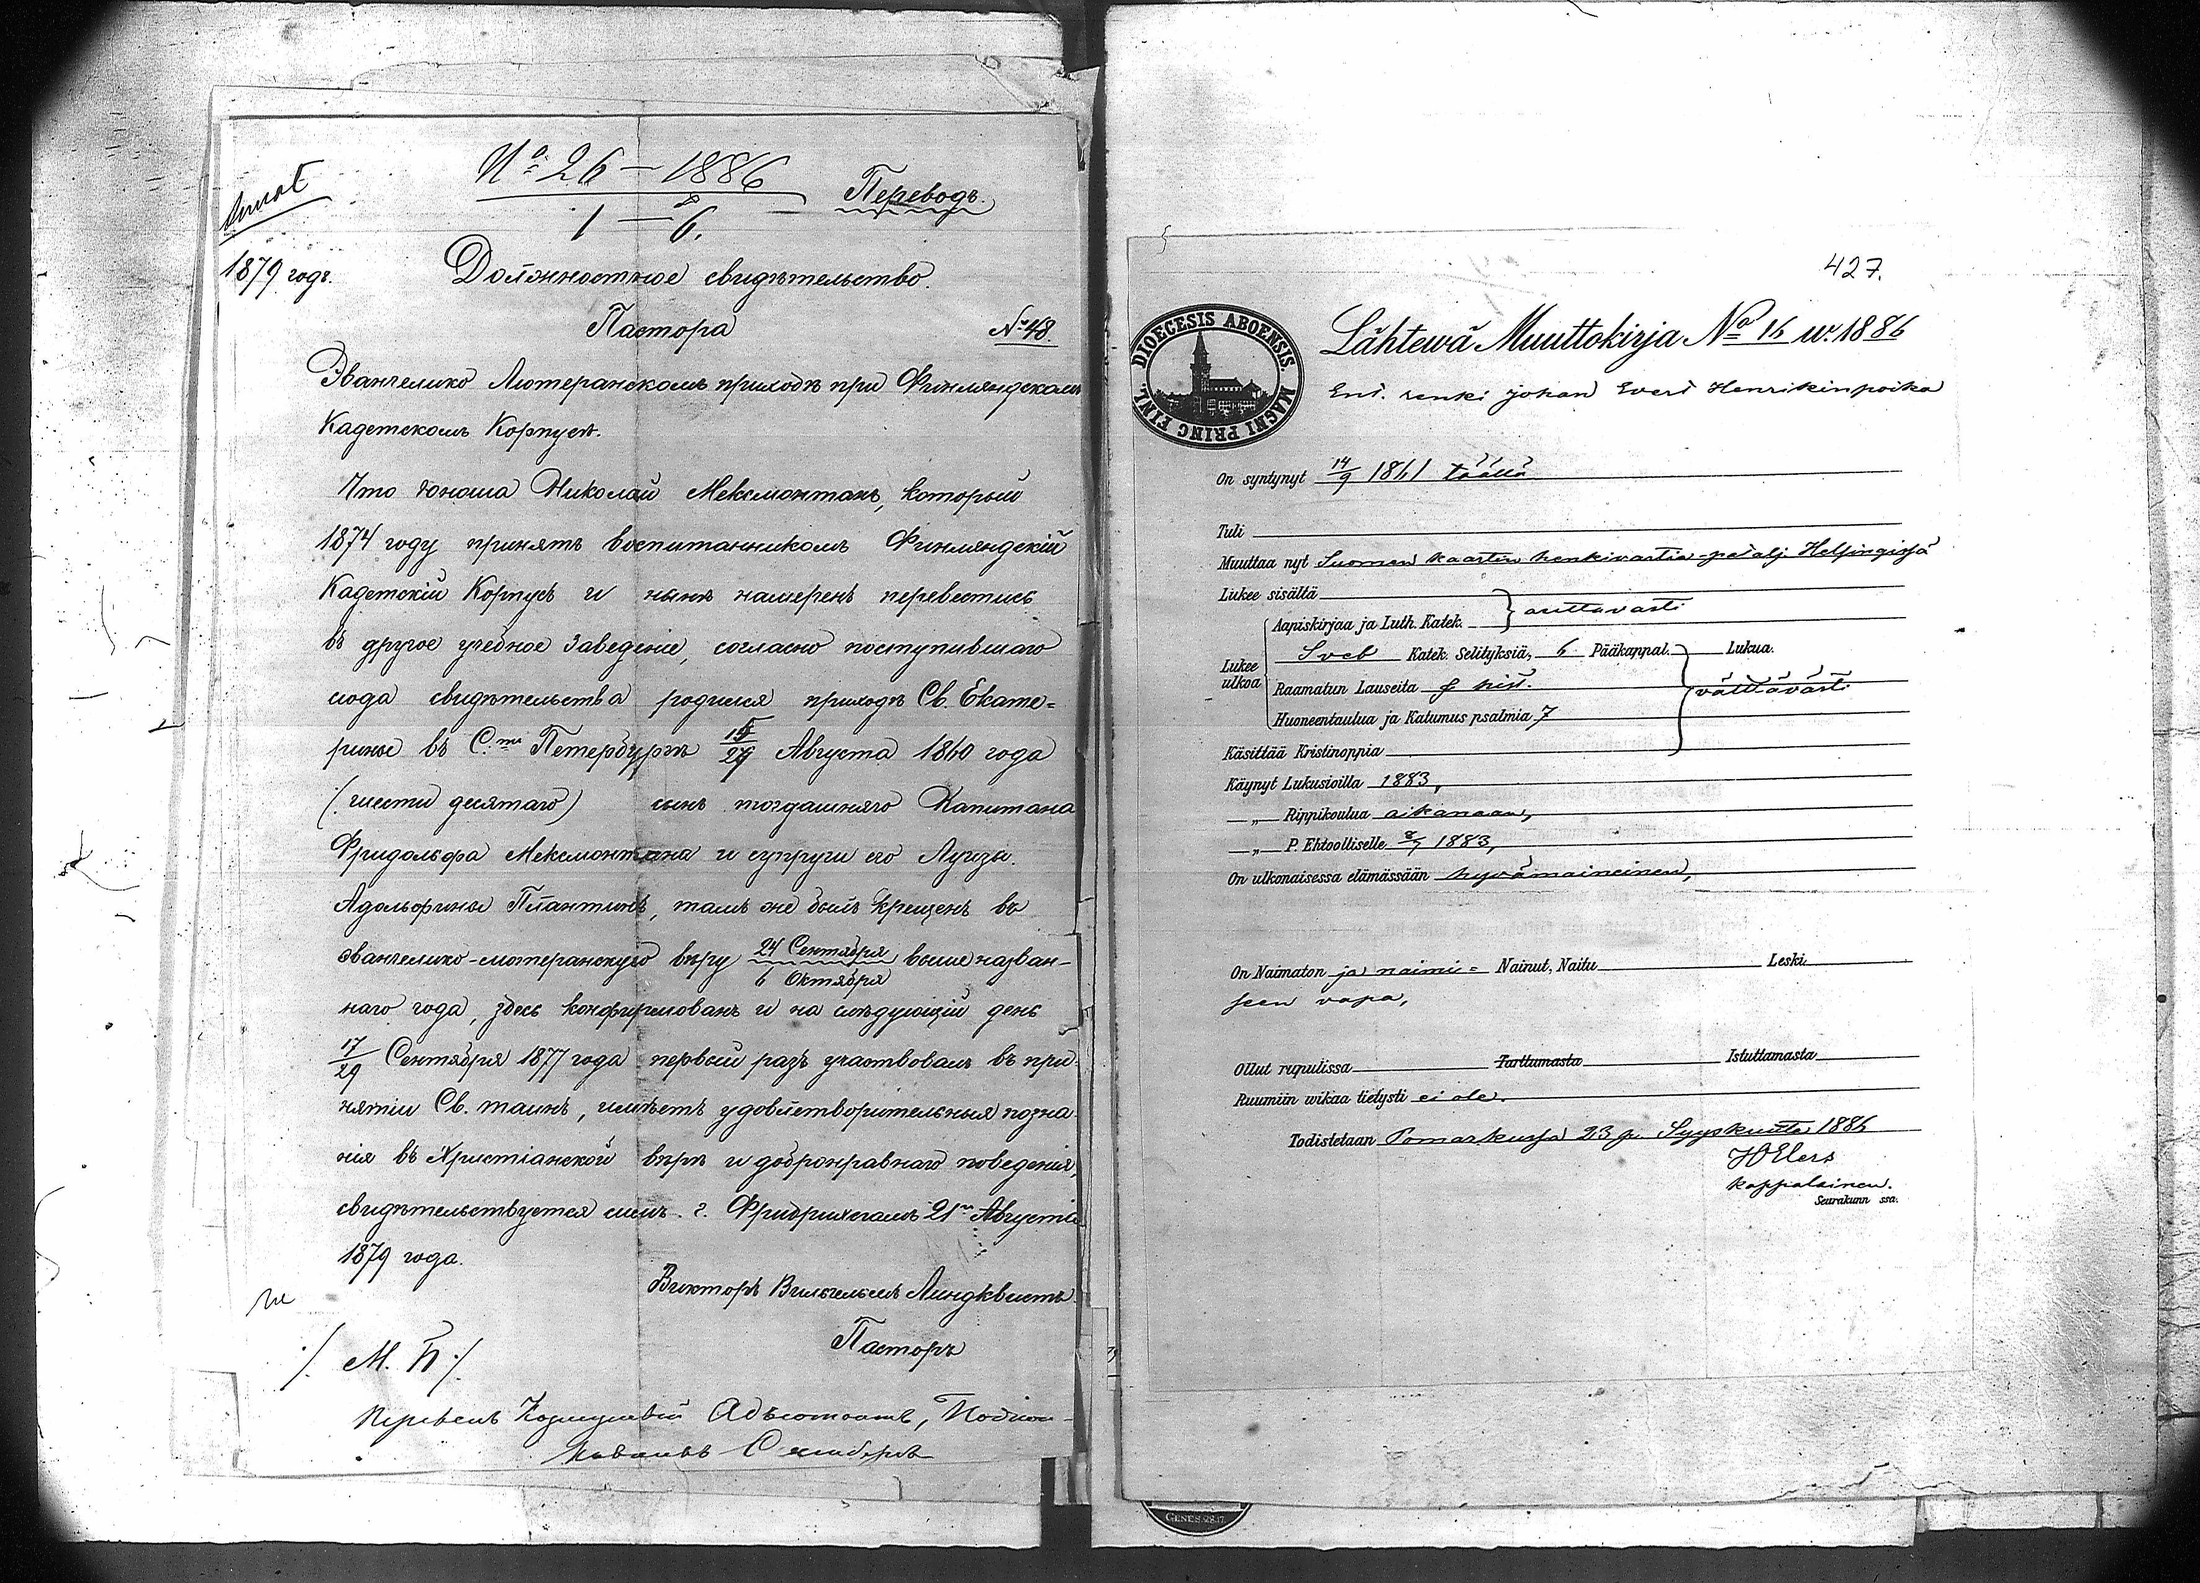 № 26 – 1886
1 – 6.
Переводъ.
1879 годъ.
Должностное свидѣтельство.
Пастора
№ 48.
Эвангелико Лютеранскомъ приходѣ при Финляндскомъ
Кадетскомъ Корпусѣ.
Что Юноша Николай Мексмонтанъ, который
1874 году принятъ воспитанникомъ Финляндскій
Кадетскій Корпусъ и нынѣ намеренъ перевестись
въ другое учебное Заведеніе, согласно поступившаго
сюда свидѣтельства родился приходѣ Св. Екате=
рины въ С.тъ Петербургѣ 15/27 Августа 1860 года
(шести десятаго) сынъ тогдашняго Капитана
Фридольфа Мексмонтана и супруги его Луизы.
Адольфины Плантинъ, тамъ же былъ крещенъ въ
эвангелико-лютеранскую вѣру 24 Сентября / 6 Октября выше назван-
наго года, здѣсь конфирмованъ и на слѣдующій день
17/29 Сентября 1877 года первый разъ участвовалъ въ при-
нятіи Св. таинъ, имѣетъ удовлетворительныя позна-
нія въ Христіанской вѣрѣ и добронравнаго поведенія,
свидѣтельствуется симъ. г. Фридрихсгамъ 21го Августа
1879 года.
Викторъ Вильгельмъ Линдквистъ.
Пасторъ
/. М. П ./
427.
DIOECESIS ABOENSIS. MAGNI PRINC FINL.
Lähtewä Muuttokirja No 16 w. 1886
Ent. renki Johan Evert Henrikinpoika
On syntynyt 14/9 1861 täällä
Tuli
Muuttaa nyt Suomen kaartin henkivartia-patalj. Helsingissä
Lukee sisältä
Aapiskirjaa ja Luth. Katek. } auttavasti
Lukee ulkoa
Sveb Katek. Selityksiä, 6 Pääkappal. Lukua.
Raamatun Lauseita & hist. } välttävästi
Huoneentaulua ja Katumus psalmia 7
Käsittää Kristinoppia
Käynyt Lukusioilla 1883,
—„— Rippikoulua aikanaan,
—„— P. Ehtoolliselle 8/7 1883,
On ulkonaisessa elämässään hyvämaineinen,
On Naimaton ja naimi= Nainut, Naitu Leski
seen vapa,
Ollut rupulissa Tarttumasta Istuttamasta
Ruumiin wikaa tietysti ei ole.
Todistetaan Pomarkussa 23 p. Syyskuuta 1886
H Elers
kappalainen.
Seurakunn ssa.
GENES. 28.17.